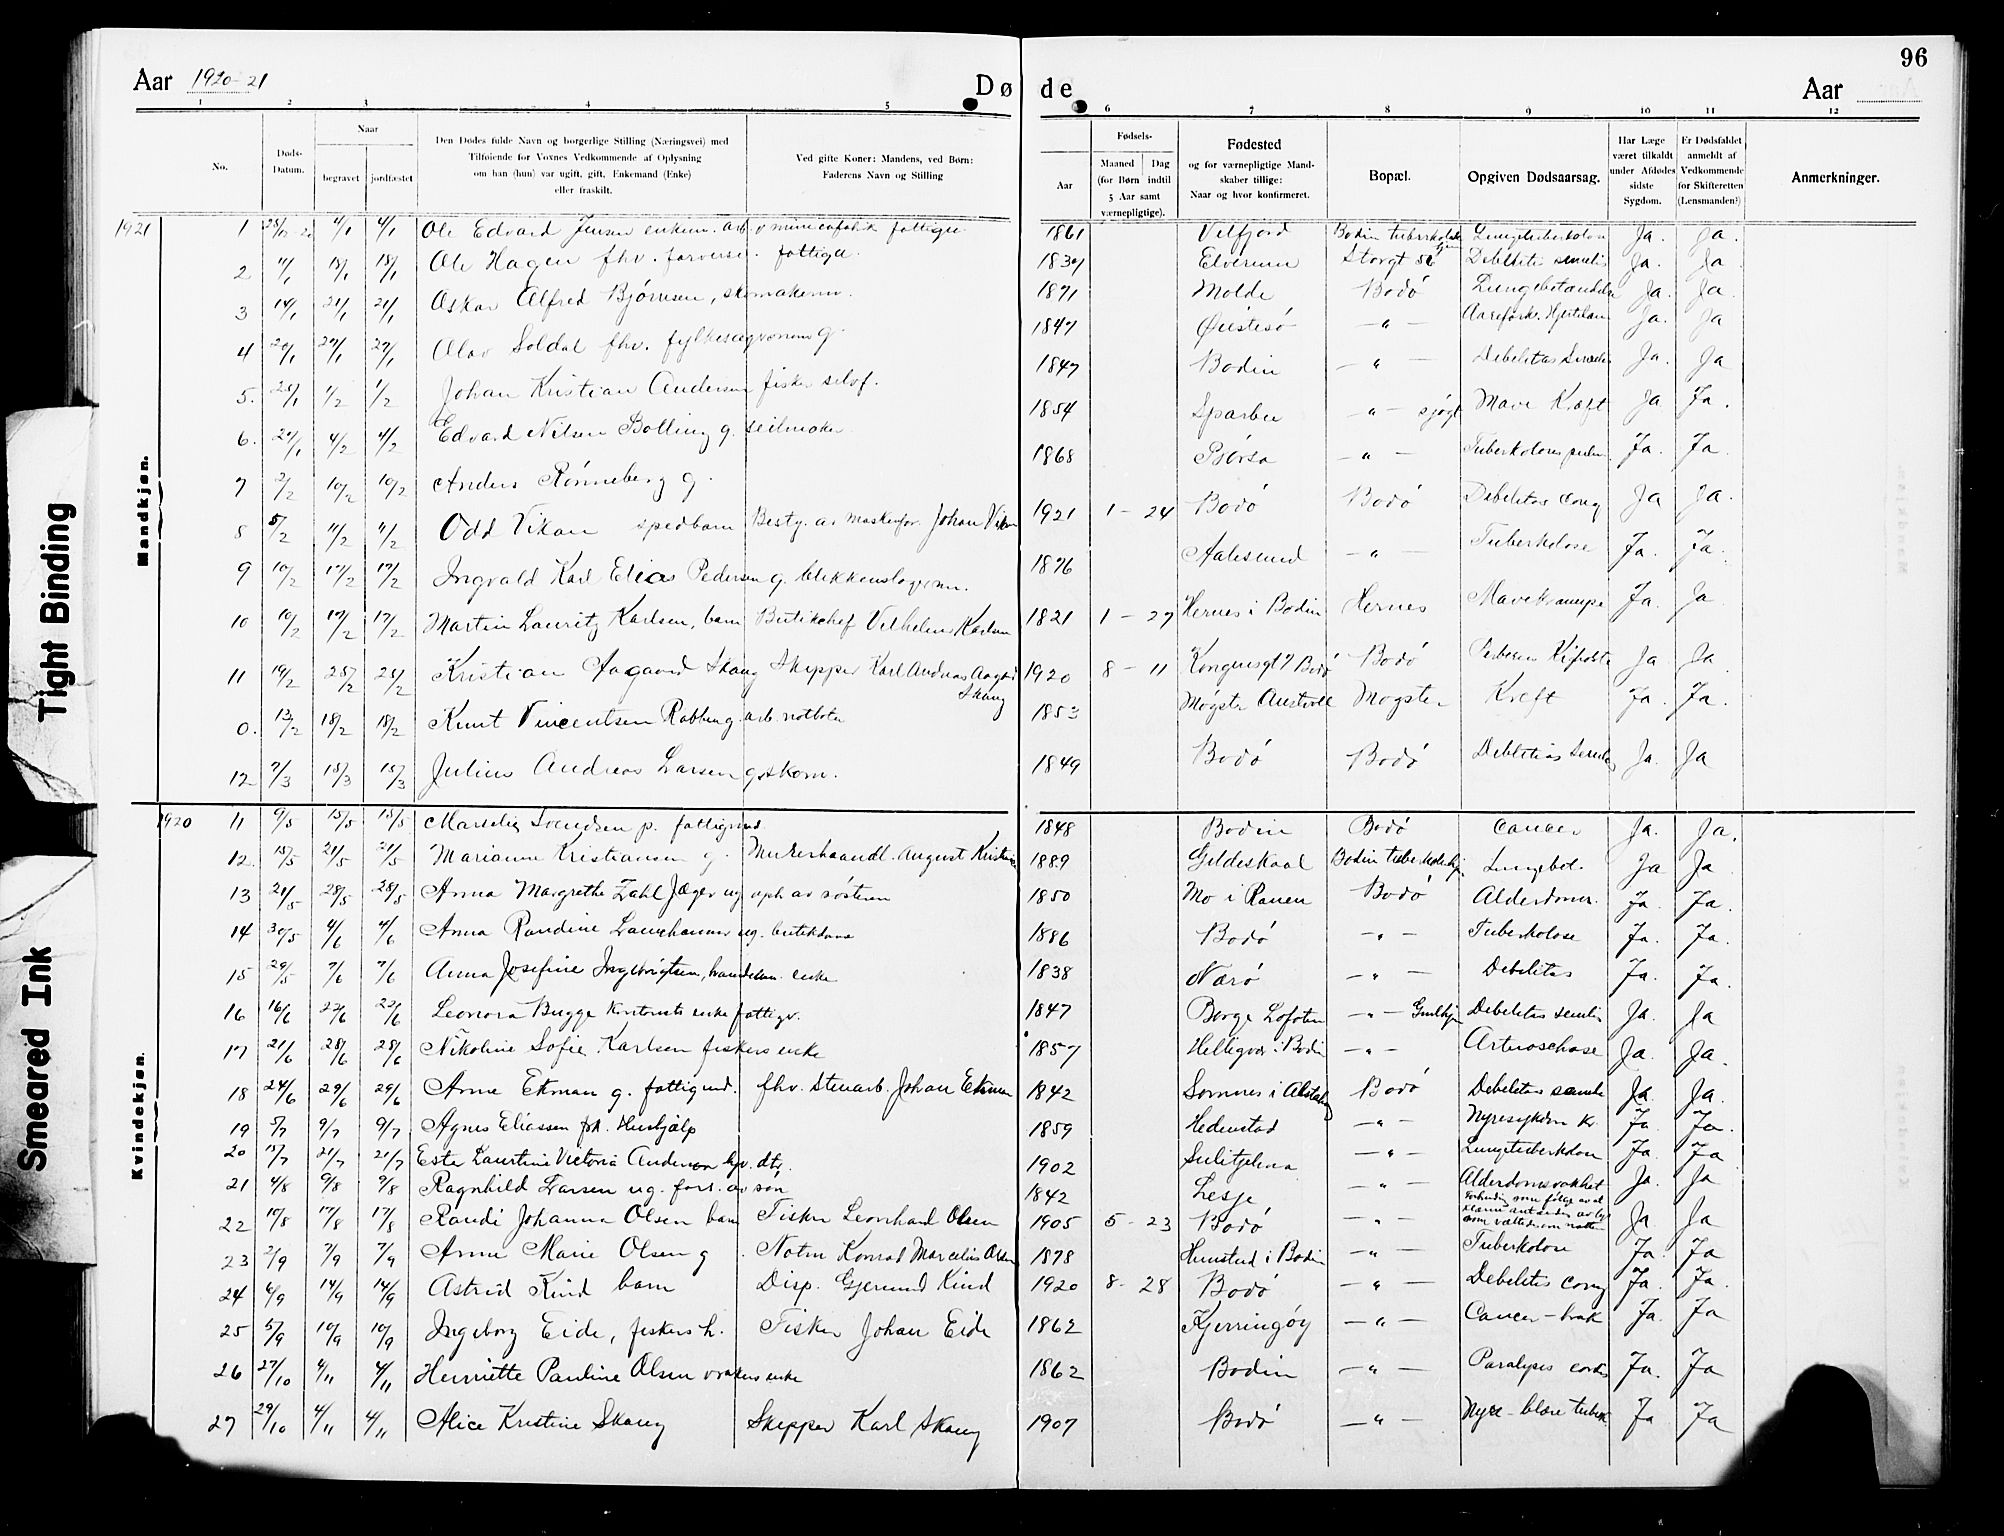 96
Aar 1920-21 Døde Aar
1 2 3 4 5 6 7 8 9 10 11 12
No. Døds-Datum. Naar begravet jordfæstet Den Dødes fulde Navn og borgerlige Stilling (Næringsvei) med Tilføiende for Voxnes Vedkommende af Oplysning om han (hun) var ugift, gift, Enkemand (Enke) eller fraskilt. Ved gifte Koner: Mandens, ved Børn: Faderens Navn og Stilling Aar Fødsels- Maaned Dag (for Børn indtil 5 Aar samt værnepligtige). Fødested og for værnepligtige Mandskaber tillige: Naar og hvor konfirmeret. Bopæl. Opgiven Dødsaarsag. Har Læge været tilkaldt under Afdødes sidste Sygdom. Er Dødsfaldet anmeldt af Vedkommende for Skifteretten (Lensmanden?) Anmerkninger.
Mandkjøn.
1921 1 28/12-20 4/1 4/1 Ole Edvard Jensen enkem. arb. fattigu. 1861 Velfjord Bodin tuberkulosehjem Lungetuberkulose Ja. Ja.
2 11/1 18/1 18/1 Ole Hagen fhv. farver fattigu. 1837 Elverum Storgt Debilitas senilis Ja. Ja
3 14/1 21/1 21/1 Oskar Alfred Bjørnsen, skomakerm. 1871 Molde Bodø Lungebetændelse Ja. Ja
4 20/1 27/1 27/1 Olav Soldal fhv. fylkesagronom g. 1847 Øistesø —"— Aareforkalkn. Hjertelam Ja. Ja
5. 25/1 1/2 1/2 Johan Kristian Andersen fisker selvf. 1847 Bodin —"— Debilitas Senilis Ja. Ja
6. 27/1 4/2 4/2 Edvard Nilsen Bolling g. seilmaker 1854 Sparbu —"— sjøgt Mave Kræft Ja Ja.
7 2/2 10/2 10/2 Anders Rønneberg g. 1868 Børsa —"— Tuberkulores pulm. Ja. Ja.
8 5/2 11/2 11/2 Odd Vikan spedbarn Besty. av Maskinfor. Johan Vikan 1921 1-24 Bodø Bodø Debelitas cong Ja Ja.
9 10/2 17/2 17/2 Ingvald Karl Elias Pedersen g. blikkenslagerm. 1876 Aalesund —"— Tuberkulose Ja. Ja.
10 10/2 17/2 17/2 Martin Lauritz Karlsen, barn Butikchef Vilhelm Karlsen 1821 1-27 Hernes i Bodin Hernes Mavekrampe Ja. Ja
11 19/2 25/2 25/2 Kristian Aagaard Skaug Skipper Karl Andreas Aagaard Skaug 1920 8-11 Kongensgt 7 Bodø Bodø Ja Ja
0. 13/2 18/2 18/2 Knut Vincentsen Rabben g. arb. notbøter 1853 Møgster Austvoll Møgster Kreft Ja. Ja.
12 7/3 15/3 15/3 Julius Andreas Larsen g. skom. 1849 Bodø Bodø Debilitas Senilis Ja. Ja
Kvindekjøn.
1920 11 9/5 15/5 15/5 Marselie Svendsen p. fattigund. 1848 Bodin Bodø Cancer Ja. Ja.
12. 15/5 21/5 21/5 Marianne Kristiansen g. Murerhaandl. August Kristiansen 1889 Gildeskaal Bodin tuberkulosehj. Lungebet. Ja Ja
13 21/5 28/5 28/5 Anna Margrethe Zahl Jæger ug oph. av søsteren 1850 Mo i Ranen Bodø Alderdoms. Ja. Ja.
14 30/5 4/6 4/6 Anna Randine ug. butikdame 1886 Bodø —"— Tuberkulose Ja. Ja.
15 29/5 7/6 7/6 Anna Josefine Ingebrigtsen, enke 1838 Nærø —"— Debelitas Ja. Ja.
16 16/6 22/6 22/6 Leonora Bugge Kontorists enke fattigv. 1847 Borge Lofoten —"— Gmlhjem Debelitas senilis Ja. Ja
17 21/6 28/6 28/6 Nikoline Sofie Karlsen fiskers enke 1857 Helligvær i Bodin —"— Ja. Ja.
18 24/6 29/6 29/6 Anne Ekman g. fattigund. fhv. Stenarb. Johan Ekman 1842 Sømnes i Alstahaug Bodø Debelitas senile Ja. Ja.
19 5/7 9/7 9/7 Agnes Eliassen frk. Hushjælp 1859 Hedenstad —"— Nyresykdom kr. Ja. Ja.
20 15/7 21/7 21/7 Ester Laurtine Victoria Andersen dtr. 1902 Sulitjelma —"— Lungetuberkulose Ja. Ja
21 4/8 9/8 9/8 Ragnhild Larsen ug. fors. av søn 1842 Lesje —"— Alderdomssvakhet Ja. Ja
22 10/8 17/8 17/8 Randi Johanna Olsen barn Fisker Leonhard Olsen 1905 5-23 Bodø —"— Forbrændig som følge av at som væltede om natten Ja Ja
23 2/9 7/9 7/9 Anne Marie Olsen g. Konrad Marcelius Olsen 1878 Hunstad i Bodin —"— Tuberkulose Ja. Ja
24 6/9 14/9 14/9 Astrid Kind barn Disp. Gjermund Kind 1920 8-28 Bodø —"— Debelitas cong Ja. Ja.
25 5/9 10/9 10/9 Ingeborg Eide, fiskers h. Fisker Johan Eide 1862 Kjerringøy —"— Cancer Ja. Ja
26 27/10 4/11 4/11 Henriette Pauline Olsen vrakers enke 1862 Bodin —"— Paralyses cordis Ja. Ja
27 29/10 4/11 4/11 Alice Kristine Skaug Skipper Karl Skaug 1907 Bodø —"— Nyre-blære tuberk. Ja Ja
Tight Binding
Smeared Ink